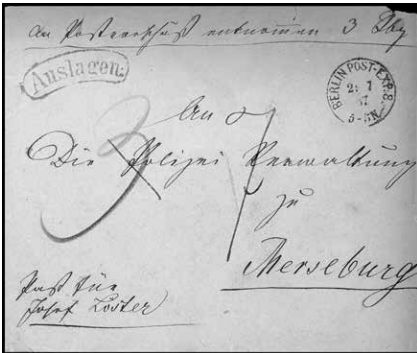 An Postvorschuß entnommen 3 Sby
Auslagen.
BERLIN POST-EXP. 8
21 7
67
5-6N
An
Die Polizei Verwaltung
zu
Merseburg
3
Paß für
Josef Loster